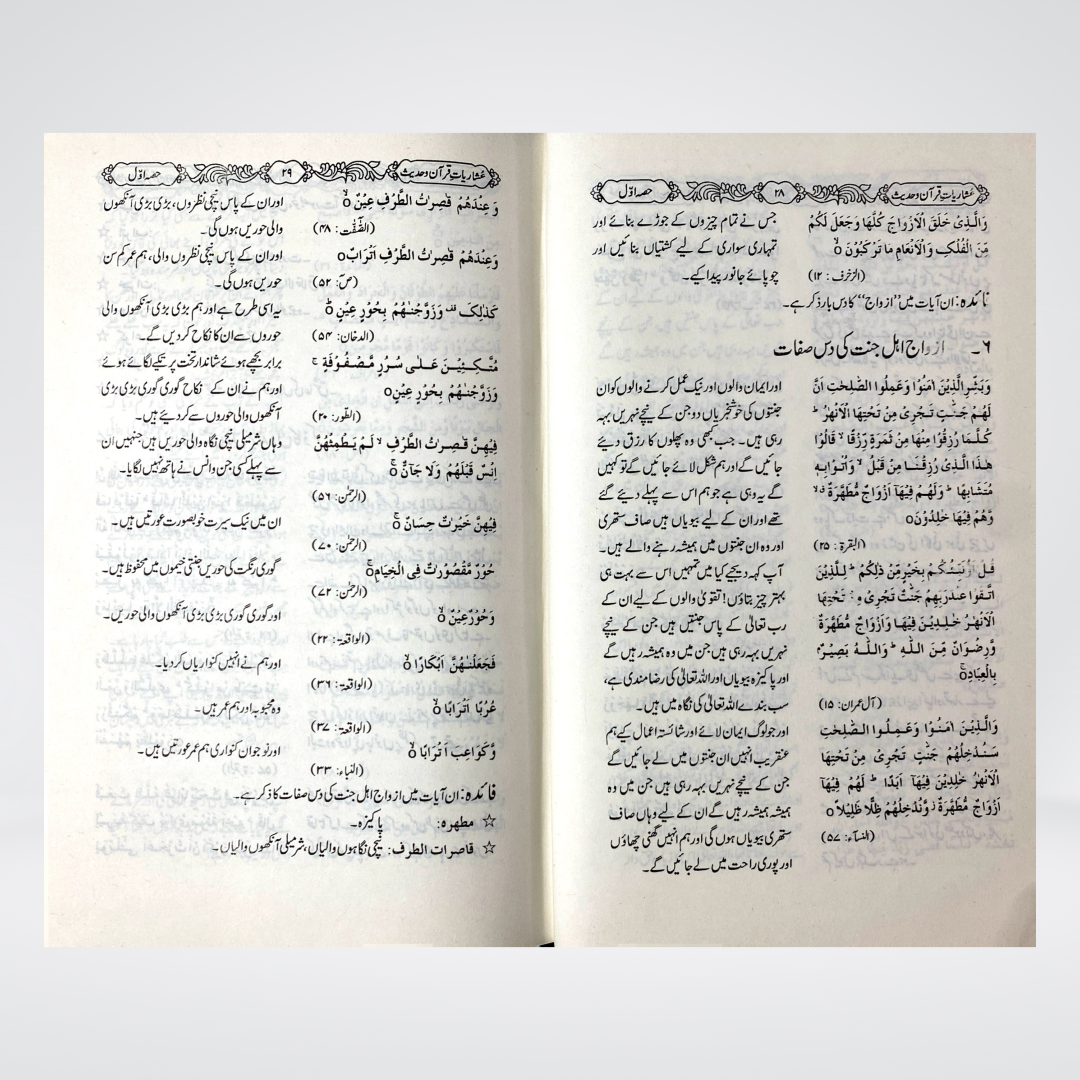 عشاریات قرآن وحدیث ۲۸ حصہ اوّل
وَالَّذِیْ خَلَقَ الْاَزْوَاجَ کُلَّهَا وَجَعَلَ لَکُمْ
مِّنَ الْفُلْکِ وَالْاَنْعَامِ مَا تَرْکَبُوْنَ ○
(الزخرف: ۱۲)
جس نے تمام چیزوں کے جوڑے بنائے اور
تمہاری سواری کے لیے کشتیاں بنائیں اور
چوپائے جانور پیدا کیے۔
فائدہ: ان آیات میں ”ازواج“ کا دس بار ذکر ہے۔
۶۔ ازواج اہل جنت کی دس صفات
وَبَشِّرِ الَّذِیْنَ اٰمَنُوْا وَعَمِلُوا الصّٰلِحٰتِ اَنَّ
لَهُمْ جَنّٰتٍ تَجْرِیْ مِنْ تَحْتِهَا الْاَنْهٰرُ ؕ
کُلَّمَا رُزِقُوْا مِنْهَا مِنْ ثَمَرَةٍ رِّزْقًا ۙ قَالُوْا
هٰذَا الَّذِیْ رُزِقْنَا مِنْ قَبْلُ ۙ وَاُتُوْا بِهٖ
مُتَشَابِهًا ؕ وَلَهُمْ فِیْهَآ اَزْوَاجٌ مُّطَهَّرَةٌ ۙ
وَّهُمْ فِیْهَا خٰلِدُوْنَ○
(البقرة: ۲۵)
اور ایمان والوں اور نیک عمل کرنے والوں کو ان
جنتوں کی خوشخبریاں دو جن کے نیچے نہریں بہہ
رہی ہیں۔ جب بھی وہ پھلوں کا رزق دیئے
جائیں گے اور ہم شکل لائے جائیں گے تو کہیں
گے یہ وہی ہے جو ہم اس سے پہلے دیئے گئے
تھے اور ان کے لیے بیویاں ہیں صاف ستھری
اور وہ ان جنتوں میں ہمیشہ رہنے والے ہیں۔
قُلْ اَؤُنَبِّئُکُمْ بِخَیْرٍ مِّنْ ذٰلِکُمْ ؕ لِلَّذِیْنَ
اتَّقَوْا عِنْدَ رَبِّهِمْ جَنّٰتٌ تَجْرِیْ مِنْ تَحْتِهَا
الْاَنْهٰرُ خٰلِدِیْنَ فِیْهَا وَاَزْوَاجٌ مُّطَهَّرَةٌ
وَّرِضْوَانٌ مِّنَ اللّٰهِ ؕ وَاللّٰهُ بَصِیْرٌۢ
بِالْعِبَادِ○
(آل عمران: ۱۵)
آپ کہہ دیجیے کیا میں تمہیں اس سے بہت ہی
بہتر چیز بتاؤں! تقویٰ والوں کے لیے ان کے
رب تعالیٰ کے پاس جنتیں ہیں جن کے نیچے
نہریں بہہ رہی ہیں جن میں وہ ہمیشہ رہیں گے
اور پاکیزہ بیویاں اور اللہ تعالیٰ کی رضامندی ہے،
سب بندے اللہ تعالیٰ کی نگاہ میں ہیں۔
وَالَّذِیْنَ اٰمَنُوْا وَعَمِلُوا الصّٰلِحٰتِ
سَنُدْخِلُهُمْ جَنّٰتٍ تَجْرِیْ مِنْ تَحْتِهَا
الْاَنْهٰرُ خٰلِدِیْنَ فِیْهَآ اَبَدًا ؕ لَهُمْ فِیْهَآ
اَزْوَاجٌ مُّطَهَّرَةٌ ۫ وَّنُدْخِلُهُمْ ظِلًّا ظَلِیْلًا○
(النسآء: ۵۷)
اور جو لوگ ایمان لائے اور شائستہ اعمال کیے ہم
عنقریب انہیں ان جنتوں میں لے جائیں گے
جن کے نیچے نہریں بہہ رہی ہیں جن میں وہ
ہمیشہ ہمیشہ رہیں گے ان کے لیے وہاں صاف
ستھری بیویاں ہوں گی اور ہم انہیں گھنی چھاؤں
اور پوری راحت میں لے جائیں گے۔
عشاریات قرآن وحدیث ۲۹ حصہ اوّل
وَعِنْدَهُمْ قٰصِرٰتُ الطَّرْفِ عِیْنٌ ○
(الصّٰفّٰت: ۴۸)
اور ان کے پاس نیچی نظروں، بڑی بڑی آنکھوں
والی حوریں ہوں گی۔
وَعِنْدَهُمْ قٰصِرٰتُ الطَّرْفِ اَتْرَابٌ○
(صٓ: ۵۲)
اور ان کے پاس نیچی نظروں والی، ہم عمر کم سن
حوریں ہوں گی۔
کَذٰلِکَ ۫ وَزَوَّجْنٰهُمْ بِحُوْرٍ عِیْنٍ ○
(الدخان: ۵۴)
یہ اسی طرح ہے اور ہم بڑی بڑی آنکھوں والی
حوروں سے ان کا نکاح کر دیں گے۔
مُتَّکِئِیْنَ عَلٰی سُرُرٍ مَّصْفُوْفَةٍ ۚ
وَزَوَّجْنٰهُمْ بِحُوْرٍ عِیْنٍ○
(الطور: ۲۰)
برابر بچھے ہوئے شاندار تخت پر تکیے لگائے ہوئے
اور ہم نے ان کے نکاح گوری گوری بڑی بڑی
آنکھوں والی حوروں سے کر دیئے ہیں۔
فِیْهِنَّ قٰصِرٰتُ الطَّرْفِ ۙ لَمْ یَطْمِثْهُنَّ
اِنْسٌ قَبْلَهُمْ وَلَا جَآنٌّ ○
(الرحمٰن: ۵۶)
وہاں شرمیلی نیچی نگاہ والی حوریں ہیں جنہیں ان
سے پہلے کسی جن وانس نے ہاتھ نہیں لگایا۔
فِیْهِنَّ خَیْرٰتٌ حِسَانٌ ○
(الرحمٰن: ۷۰)
ان میں نیک سیرت خوبصورت عورتیں ہیں۔
حُوْرٌ مَّقْصُوْرٰتٌ فِی الْخِیَامِ○
(الرحمٰن: ۷۲)
گوری رنگت کی حوریں جنتی خیموں میں محفوظ ہیں۔
وَحُوْرٌ عِیْنٌ ○
(الواقعة: ۲۲)
اور گوری گوری بڑی بڑی آنکھوں والی حوریں۔
فَجَعَلْنٰهُنَّ اَبْکَارًا ○
(الواقعة: ۳۶)
اور ہم نے انہیں کنواریاں کر دیا۔
عُرُبًا اَتْرَابًا ○
(الواقعة: ۳۷)
وہ محبوبہ اور ہم عمر ہیں۔
وَّکَوَاعِبَ اَتْرَابًا ○
(النباء: ۳۳)
اور نوجوان کنواری ہم عمر عورتیں ہیں۔
فائدہ: ان آیات میں ازواج اہل جنت کی دس صفات کا ذکر ہے۔
☆ مطهره: پاکیزہ۔
☆ قاصرات الطرف: نیچی نگاہوں والیاں، شرمیلی آنکھوں والیاں۔